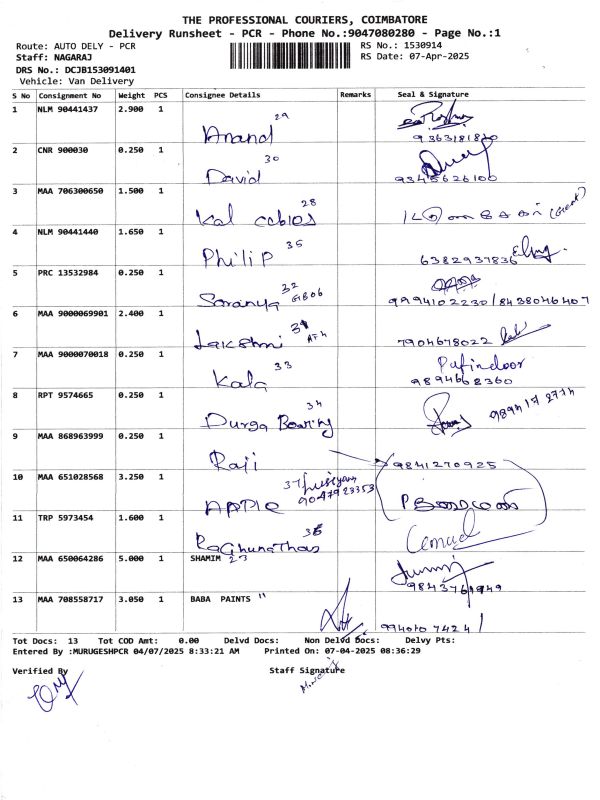 THE PROFESSIONAL COURIERS, COIMBATORE
Delivery Runsheet - PCR - Phone No.:9047080280 - Page No.:1
Route: AUTO DELY - PCR RS No.: 1530914
Staff: NAGARAJ RS Date: 07-Apr-2025
DRS No.: DCJB153091401
Vehicle: Van Delivery
S No Consignment No Weight PCS Consignee Details Remarks Seal & Signature
1 NLM 90441437 2.900 1 Anand 29
2 CNR 900030 0.250 1 David 30 9345626100
3 MAA 706300650 1.500 1 Kal cables 28
4 NLM 90441440 1.650 1 Philip 35 6382937836
5 PRC 13532984 0.250 1 Saranya 32 9994102230/8438046407
6 MAA 9000069901 2.400 1 Lakshmi 31 7904678022
7 MAA 9000070018 0.250 1 Kala 33 9894668360
8 RPT 9574665 0.250 1 Durga Bearing 34
9 MAA 868963999 0.250 1 Raji 9841270925
10 MAA 651028568 3.250 1 Apple 37 9047923353
11 TRP 5973454 1.600 1 Raghunathan 36
12 MAA 650064286 5.000 1 SHAMIM 23
13 MAA 708558717 3.050 1 BABA PAINTS "
Tot Docs: 13 Tot COD Amt: 0.00 Delvd Docs: Non Delvd Docs: Delvy Pts:
Entered By :MURUGESHPCR 04/07/2025 8:33:21 AM Printed On: 07-04-2025 08:36:29
Verified By Staff Signature